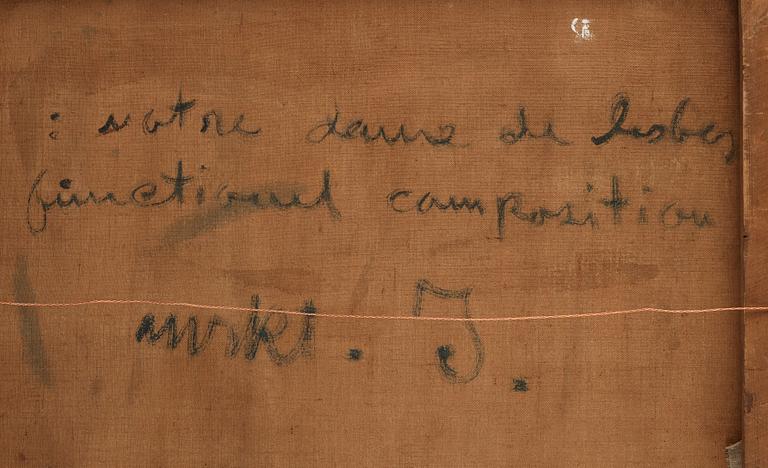 : notre dame de lesbos
functionel composition
mrkt . J .